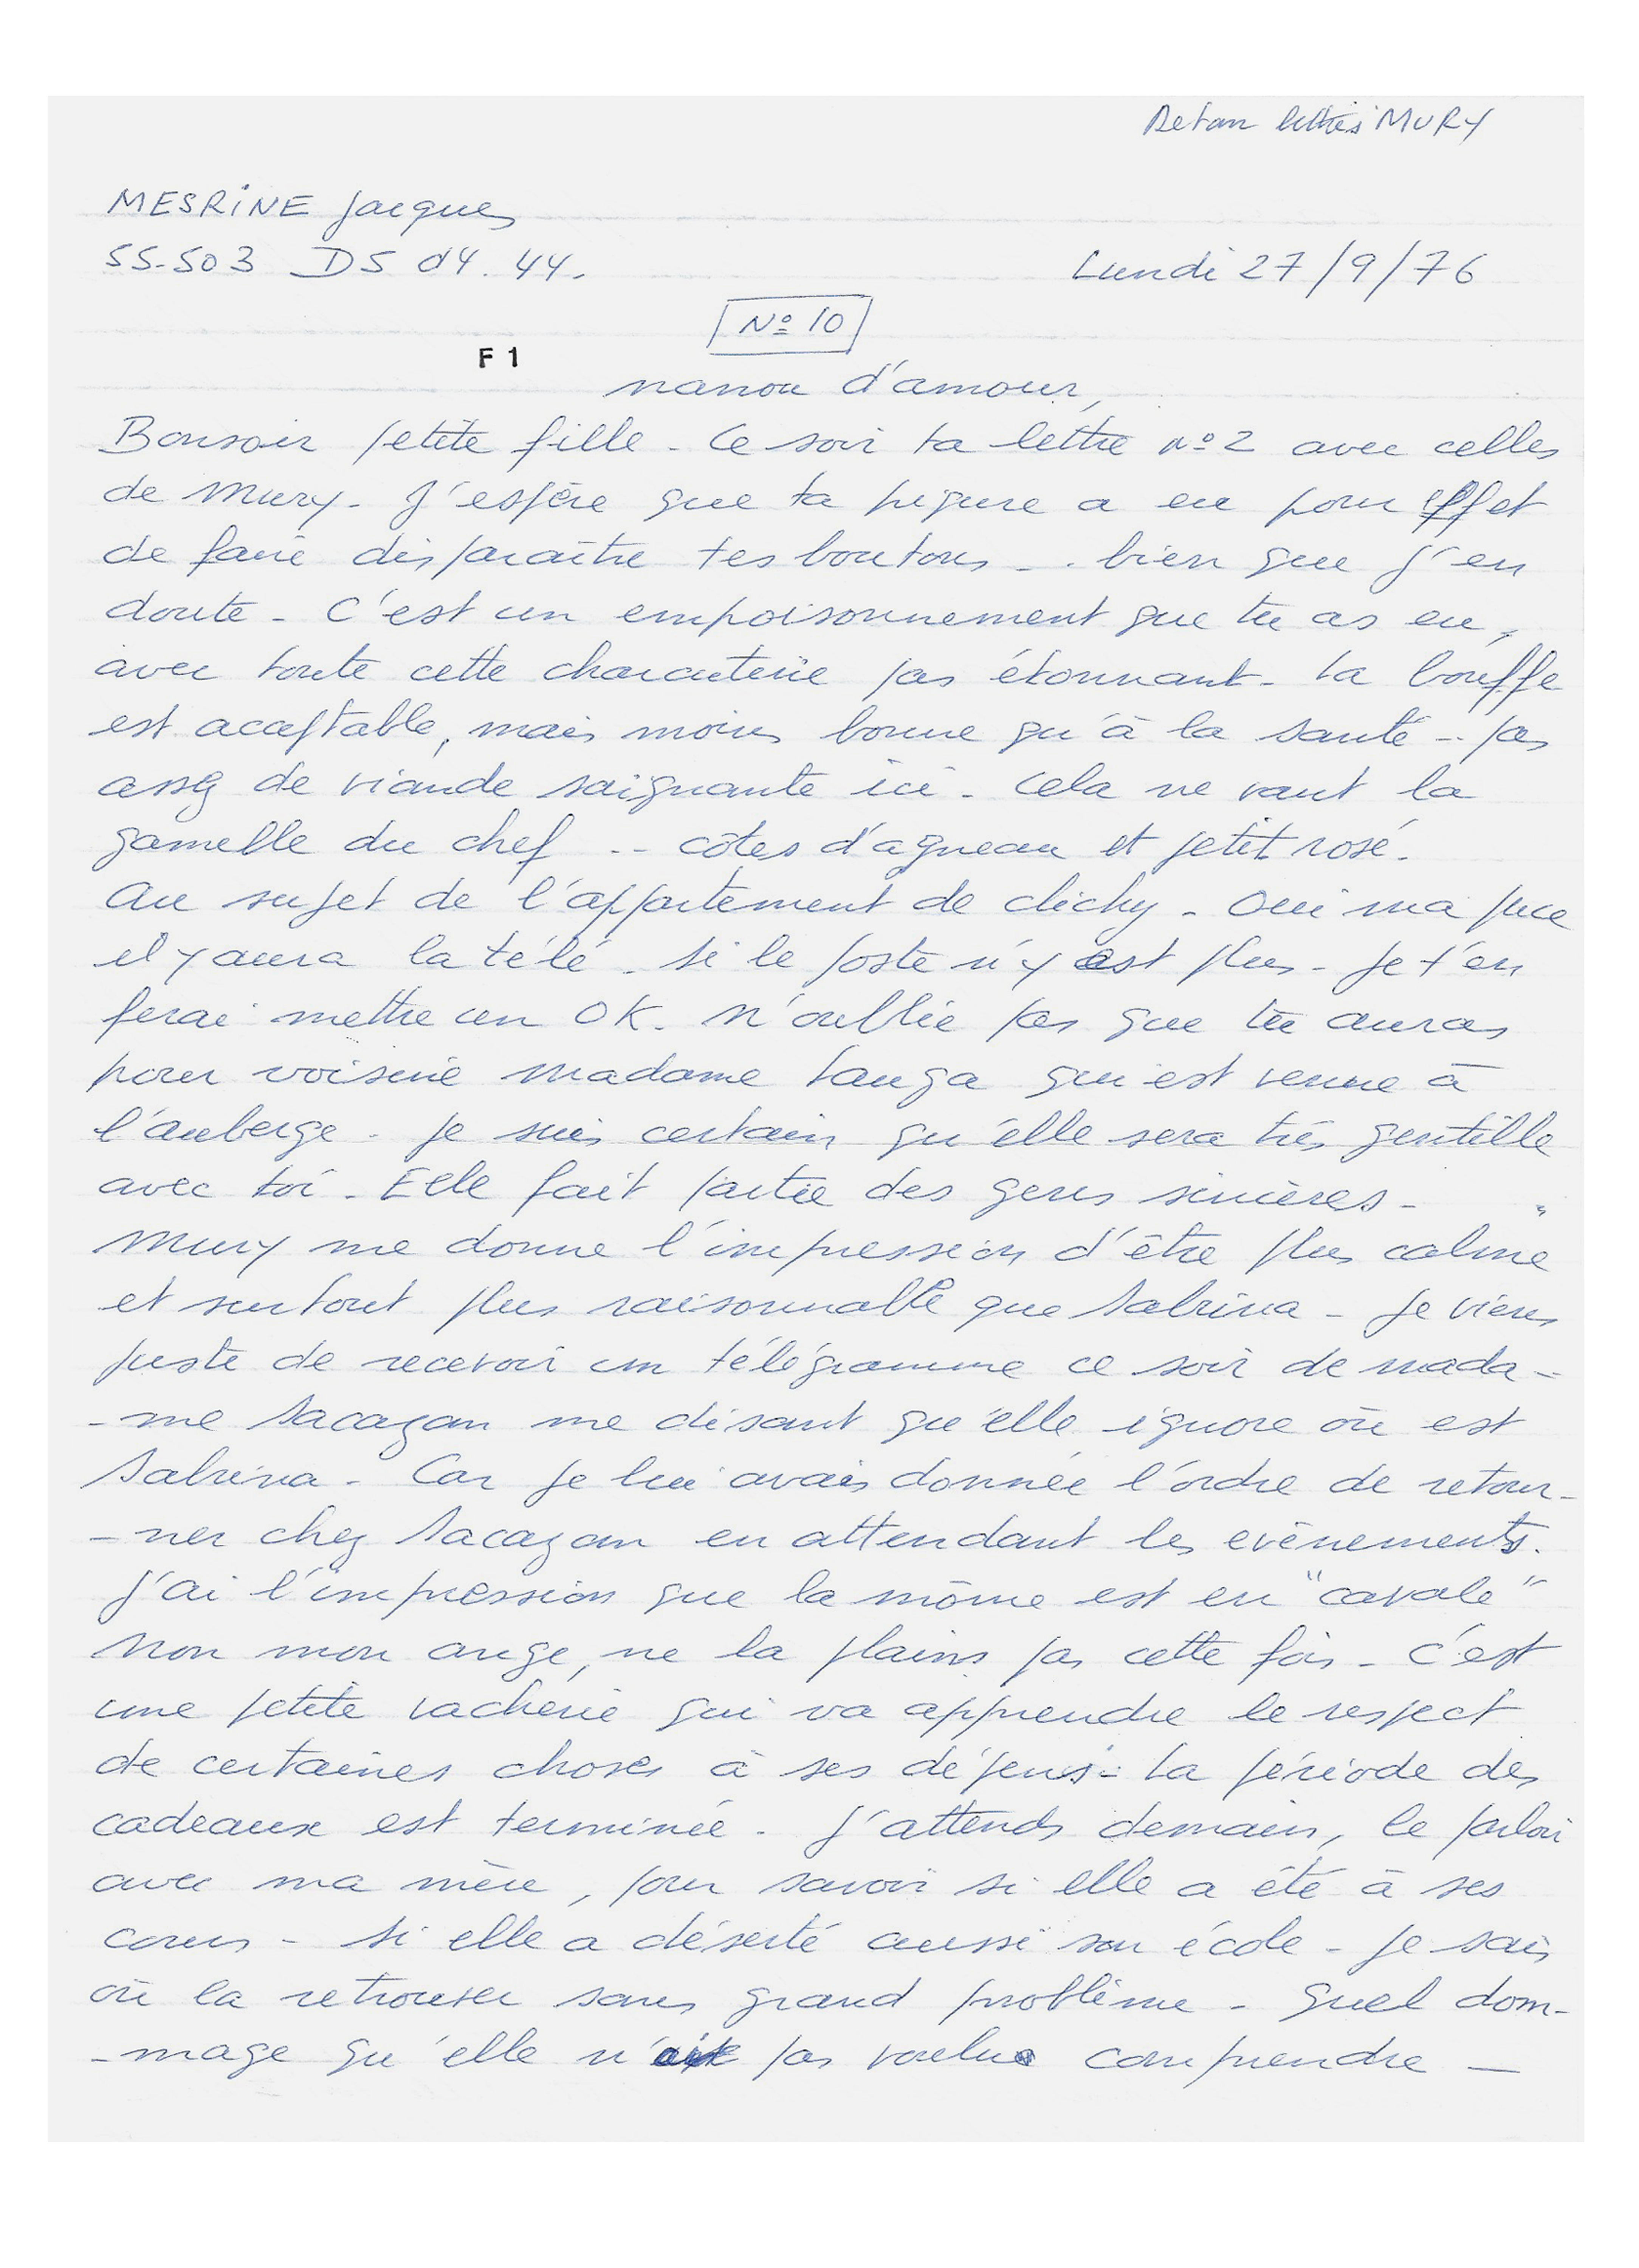 Retour lettres MURY
MESRINE Jacques
55-503 D5 d4. 44.
Lundi 27/9/76
N° 10
F 1
nanou d'amour,
Bonsoir petite fille - Ce soir ta lettre n° 2 avec celles
de Mury - J'espère que ta piqure a eu pour effet
de faire disparaître tes boutons .. bien que j'en
doute - C'est un empoisonnement que tu as eu,
avec toute cette charcuterie pas étonnant - La bouffe
est acceptable, mais moins bonne qu'à la santé .. pas
assez de viande saignante ici - Cela ne vaut la
gamelle du chef .. côtes d'agneau et petit rosé.
Au sujet de l'appartement de clichy - Oui ma puce
il y aura la télé - Si le poste n'y est plus - Je t'en
ferai mettre un OK. N'oublie pas que tu auras
pour voisine madame Tanga qui est venue à
l'auberge - Je suis certain qu'elle sera très gentille
avec toi - Elle fait partie des gens sincères -
Mury me donne l'impression d'être plus calme
et surtout plus raisonnable que Sabrina - Je viens
juste de recevoir un télégramme ce soir de mada-
-me Sacazan me disant qu'elle ignore où est
Sabrina - Car je lui avais donnée l'ordre de retour-
-ner chez Sacazan en attendant les evènements.
J'ai l'impression que la môme est en "cavale"
Non mon ange, ne la plains pas cette fois - C'est
une petite vacherie qui va apprendre le respect
de certaines choses à ses dépens - La période des
cadeaux est terminée - J'attends demain, le parloir
avec ma mère, pour savoir si elle a été à ses
cours - Si elle a déserté aussi son école - Je sais
où la retrouver sans grand problème - Quel dom-
-mage qu'elle n'ait pas voulu comprendre -